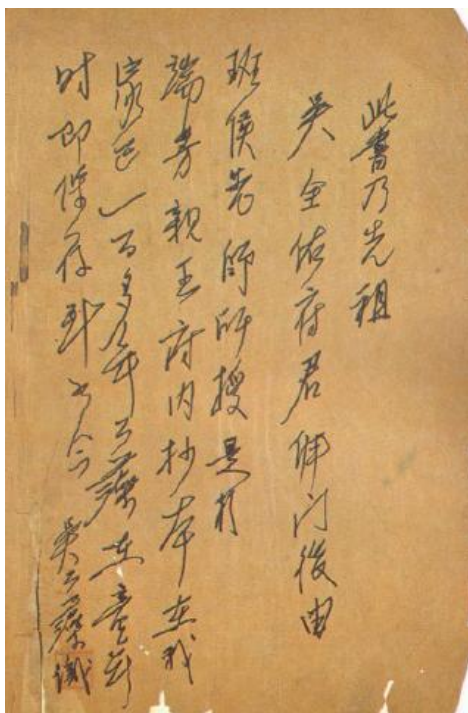 此書乃先祖
吳全佑府君拜门後由
班侯老師所授是於
端芳親王府内抄本在我
家已一百多年公藻在童年
时即保存到如今 吳公藻識